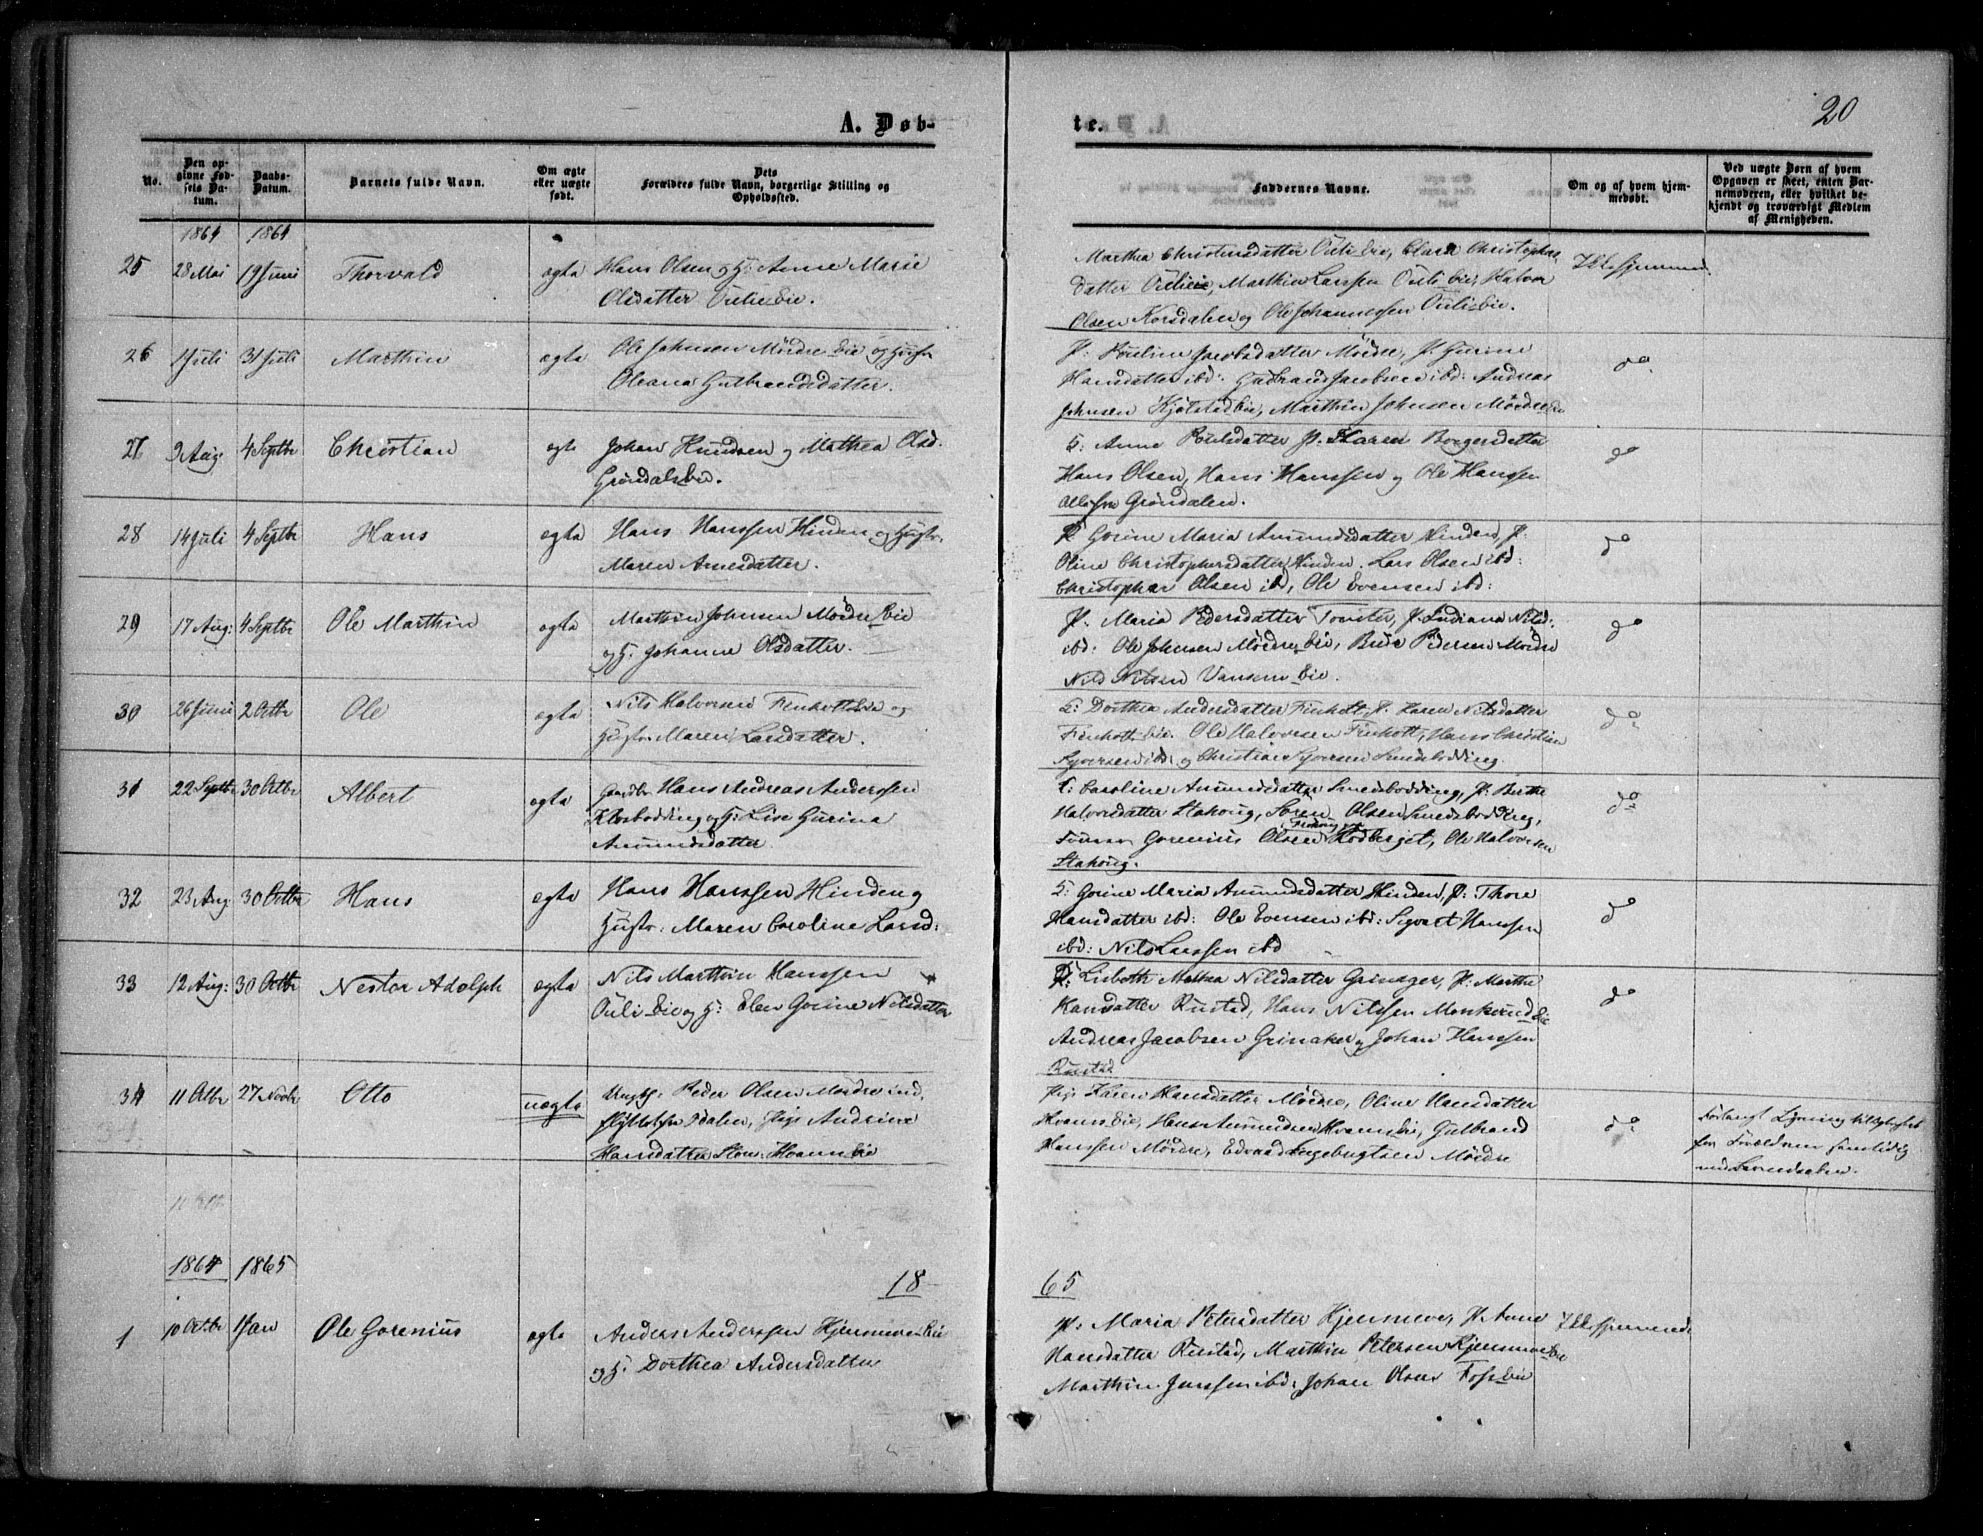 20
A. Døb-
te.
No.
Den op-
givne Fød-
sels Da-
tum.
Daabs-
Datum.
Barnets fulde Navn.
Om ægte
eller uægte
født.
Dets
Forældres fulde Navn, borgerlige Stilling og
Opholdssted.
Faddernes Navne.
Om og af hvem hjem-
medøbt.
Ved uægte Børn af hvem
Opgaven er skeet, enten Bar-
nemoderen, eller hvilket be-
kjendt og troværdigt Medlem
af Menigheden.
1864 1864
25 28 Mai 19 Juni Thorvald ægte
Hans Olsen og H: Anne Marie
Olsdatter Oulie Eie.
Marthea Christensdatter Ouli Eie, Clara Christophers
datter Oulie, Marthin Larssen Ouli Eie, Halvor
Olsen Korsdalen og Ole Johannessen Oulie Eie.
Ikke hjemmed.
26 1 Juli 31 Juli Marthin ægte
Ole Johnsen Mördre Eie og Hustr
Oleana Gulbrandsdatter.
P: Pouline Jacobsdatter Mördre, P: Gurine
Hansdatter ibd: Gudbrand Jacobsen ibd: Andreas
Johnsen Kjölstad Eie, Marthin Johnsen Mördre
do
27 9 Aug 4 Septbr Christian ægte
Johan Knudsen og Mathea Olsd.
Gröndals Eie.
G: Anne Poulsdatter P: Karen Borgersdatter
Hans Olsen, Hans Hanssen og Ole Hansen
Alle fra Gröndalen.
do
28 14 Juli 4 Septbr Hans ægte
Hans Hanssen Hinden og Hustr.
Maren Arnesdatter.
K Gorine Maria Amundsdatter Hinden, P.
Oline Christophersdatter Hinden. Lars Olsen ibd:
Christopher Olsen ibd, Ole Evensen ibd:
do
29 17 Aug: 4 Septbr Ole Marthin ægte
Marthin Johnsen Mördre Eie
og H. Johanne Olsdatter.
P. Maria Pedersdatter, P. Indiana Nilsd.
ibd: Ole Johnsen Mördre Eie, Pedersen Mördre
Nils Nilsen Vansem Eie.
do
30 26 Juni 2 Octbr Ole ægte
Nils Halvorsen Finholt Eie og
Hustr. Maren Larsdatter.
G: Dorthea Andersdatter Finholt, P. Karen Nilsdatter
Finholt Eie. Ole Halvorsen Finholt, Hans Christian
Syversen ibd: og Christian Syversen Smedsbödding.
do
31 22 Septbr 30 Octbr Albert ægte
Gaardbr Hans Andreas Anderssen
Klosbödding, og H: Lise Gurina
Amundsdatter
K: Caroline Amundsdatter Smedsbödding, P: Berthe
Halvorsdatter Stahoug, Sören Olsen Smedsbödding,
Gorenius Olsen Rödberget, Ole Halvorsen
Stahoug.
do
32 23 Aug 30 Octbr Hans ægte
Hans Hanssen Hinden og
Hustr: Maren Caroline Larsd:
G: Gorine Maria Amundsdatter Hinden, P: Thore
Hansdatter ibd: Ole Evensen ibd: Sigvart Hanssen
ibd: Nils Larssen ibd
do
33 12 Aug: 30 Octbr Nestor Adolph ægte
Nils Marthin Hanssen
Ouli Eie og H: Elen Gorine Nilsdatter
K: Lisbeth Mathea Nilsdatter Grinager, P: Marthe
Hansdatter Rustad, Hans Nilssen Monkerud Eie
Andreas Jacobsen Grinaker og Johan Hanssen
Rustad
do
34 11 Octbr 27 Novbr Otto uægte
Ungk: Peder Olsen Mördre ind,
flyttet fra Odalen, Pige Andrine
Hansdatter Hvam Eie
Pig: Karen Hansdatter Mördre, Oline Hansdatter
Hvams Eie, Hans Amundsen Hvams Eie, Gulbrand
Hanssen Mördre, Edvard Ingebrigtsen Mördre
do
Forlangt Lysning
for Forældrene samtidig
med
1864 1865
18
65
1 10 Octbr 1 Jan Ole Gorenius ægte
Anders Anderssen Hjemmen Eie
og H: Dorthea Andersdatter
P: Maria Petersdatter Hjemmen, P. Anne
Hansdatter Rustad, Marthin Petersen Hjemmen Eie
Marthin Jenssen ibd: Johan Olsen Foss Eie
Ikke hjemmed.